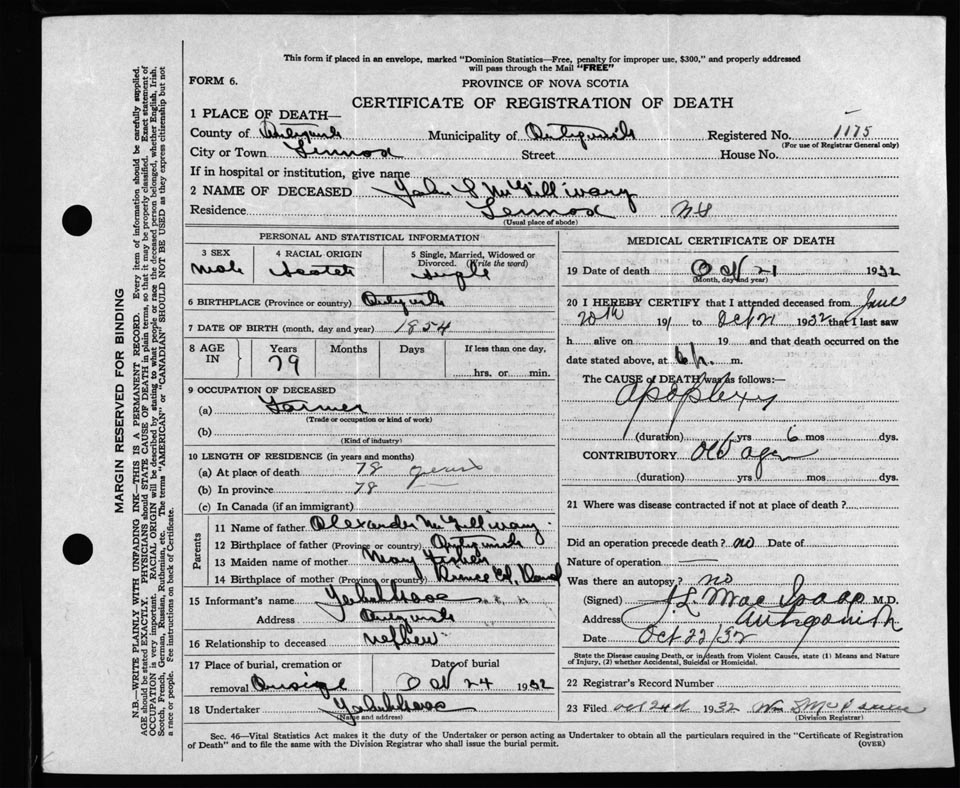 This form if placed in an envelope, marked "Dominion Statistics—Free, penalty for improper use, $300," and properly addressed
will pass through the Mail "FREE"
FORM 6.
PROVINCE OF NOVA SCOTIA
CERTIFICATE OF REGISTRATION OF DEATH
1 PLACE OF DEATH—
County of Antigonish Municipality of Antigonish Registered No. 1175
(For use of Registrar General only)
City or Town Lennox Street House No.
If in hospital or institution, give name
2 NAME OF DECEASED John S McGillivary
Residence Lennox NS
(Usual place of abode)
PERSONAL AND STATISTICAL INFORMATION
3 SEX 4 RACIAL ORIGIN 5 Single, Married, Widowed or Divorced. (Write the word)
Male Scotch Single
6 BIRTHPLACE (Province or country) Antigonish
7 DATE OF BIRTH (month, day and year) 1854
8 AGE IN Years Months Days If less than one day,
79 hrs. or min.
9 OCCUPATION OF DECEASED
(a) Farmer
(Trade or occupation or kind of work)
(b)
(Kind of industry)
10 LENGTH OF RESIDENCE (in years and months)
(a) At place of death 78 years
(b) In province 78
(c) In Canada (if an immigrant)
Parents
11 Name of father Alexander McGillivary
12 Birthplace of father (Province or country) Antigonish
13 Maiden name of mother Mary
14 Birthplace of mother (Province or country) Prince Ed. Island
15 Informant's name
Address Antigonish
16 Relationship to deceased Nephew
17 Place of burial, cremation or removal Date of burial
Oct 24 1932
18 Undertaker
(Name and address)
MEDICAL CERTIFICATE OF DEATH
19 Date of death Oct 21 1932
(Month, day and year)
20 I HEREBY CERTIFY that I attended deceased from June
20th 19 to Oct 21 1932 that I last saw
h alive on 19 and that death occurred on the
date stated above, at 6 p. m.
The CAUSE of DEATH was as follows:
Apoplexy
(duration) yrs 6 mos dys.
CONTRIBUTORY Old age
(duration) yrs mos dys.
21 Where was disease contracted if not at place of death?
Did an operation precede death? no Date of
Nature of operation —
Was there an autopsy? no
(Signed) J L MacIsaac M.D.
Address Antigonish
Date Oct 22/32
State the Disease causing Death, or in death from Violent Causes, state (1) Means and Nature
of Injury, (2) whether Accidental, Suicidal or Homicidal.
22 Registrar's Record Number
23 Filed Oct 24th 1932
(Division Registrar)
Sec. 46—Vital Statistics Act makes it the duty of the Undertaker or person acting as Undertaker to obtain all the particulars required in the "Certificate of Registration
of Death" and to file the same with the Division Registrar who shall issue the burial permit.
(OVER)
MARGIN RESERVED FOR BINDING
N.B.—WRITE PLAINLY WITH UNFADING INK—THIS IS A PERMANENT RECORD. Every item of information should be carefully supplied.
AGE should be stated EXACTLY. PHYSICIANS should STATE CAUSE OF DEATH in plain terms, so that it may be properly classified. Exact statement of
OCCUPATION is very important. RACIAL ORIGIN will be described by stating to what people or race the deceased person belonged, whether English, Irish,
Scotch, French, German, Russian, Ruthenian, etc. The terms "AMERICAN" or "CANADIAN" SHOULD NOT BE USED as they express citizenship but not
a race or people. Fee instructions on back of Certificate.